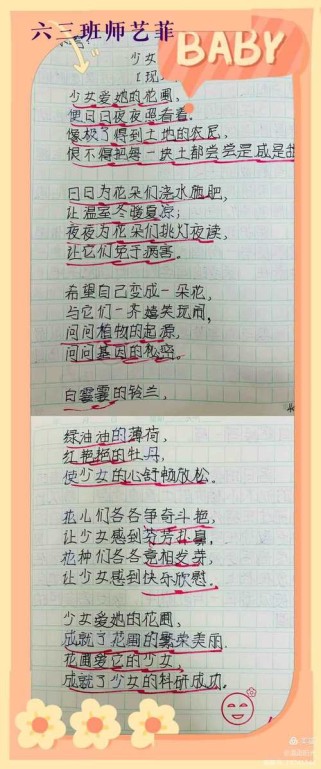 六三班师艺菲
BABY
少女
[现
少女爱她的花圃,
便日日夜夜照看着。
像极了得到土地的农民,
恨不得把每一块土都尝尝是咸是甜
日日为花朵们浇水施肥,
让温室冬暖夏凉;
夜夜为花朵们挑灯夜读,
让它们免于病害。
希望自己变成一朵花,
与它们一齐嬉笑玩闹,
问问植物的起源,
问问基因的秘密。
白霎霎的铃兰,
绿油油的薄荷,
红艳艳的牡丹,
使少女的心舒畅放松。
花儿们各各争奇斗艳,
让少女感到芬芳扑鼻,
花种们各各竟相发芽,
让少女感到快乐欣慰。
少女爱她的花圃,
成就了花圃的繁荣美丽.
花圃爱它的少女,
成就了少女的科研成功。